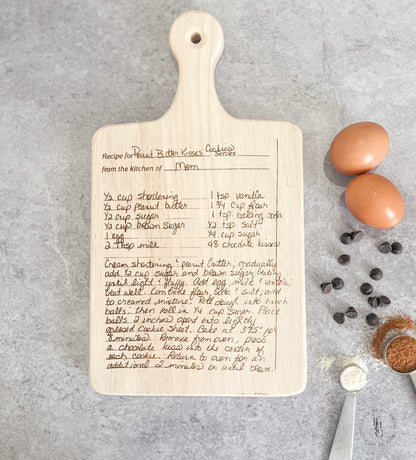 Recipe for Peanut Butter Kisses Cookies Serves
from the kitchen of Mom
1/2 cup shortening 1 tsp vanilla
1/2 cup peanut butter 1 3/4 cup flour
1/2 cup sugar 1 tsp baking soda
1/2 cup brown sugar 1/2 tsp salt
1 egg 1/4 cup sugar
2 tbsp milk 48 chocolate kisses
Cream shortening & peanut butter, gradually
add 1/2 cup sugar and brown sugar, beating
until light & fluffy. Add egg, milk & vanilla,
beat well. Combine flour, soda & salt, add
to creamed mixture. Roll dough into 1-inch
balls, then roll in 1/4 cup sugar. Place
balls 2 inches apart onto lightly
greased cookie sheet. Bake at 375° for
minutes. Remove from oven, press
a chocolate kiss into the center of
each cookie. Return to oven for an
additional 2 minutes or until brown.